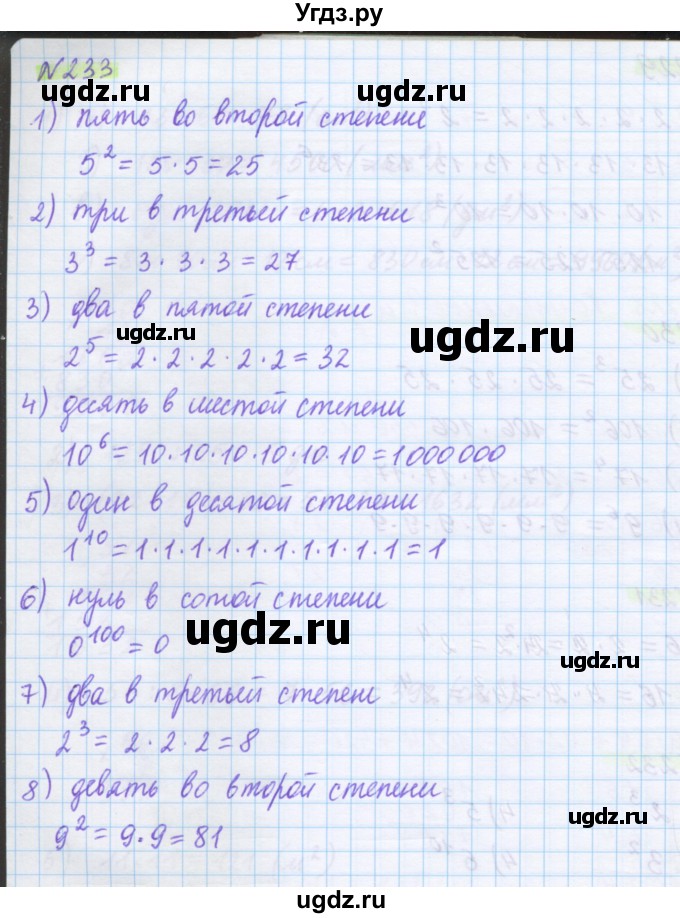 Угдз.ру
N233
ugdz.ru
ugdz.ru
1) пять во второй степени
5² = 5·5 = 25
2) три в третьей степени
3³ = 3·3·3 = 27
3) два в пятой степени
ugdz.ru
ugdz.ru
2⁵ = 2·2·2·2·2 = 32
4) десять в шестой степени
10⁶ = 10·10·10·10·10·10 = 1000000
5) один в десятой степени
1¹⁰ = 1·1·1·1·1·1·1·1·1·1 = 1
6) нуль в сотой степени
ugdz.ru
0¹⁰⁰ = 0
ugdz.ru
7) два в третьей степени
2³ = 2·2·2 = 8
8) девять во второй степени
ugdz.ru
9² = 9·9 = 81
ugdz.ru
ugdz.ru